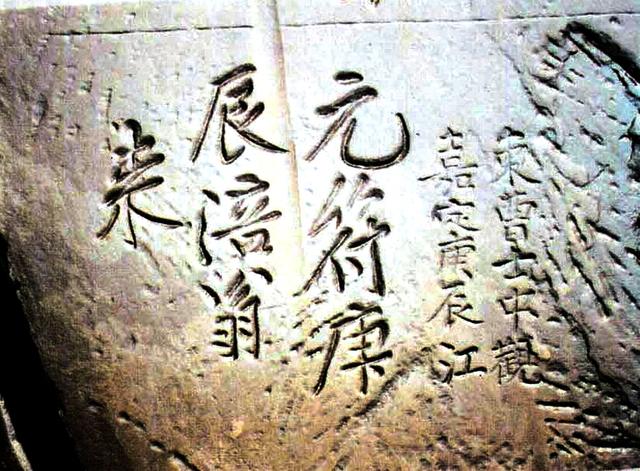 元符庚
辰涪翁
来
嘉定庚辰江
東曹士中觀